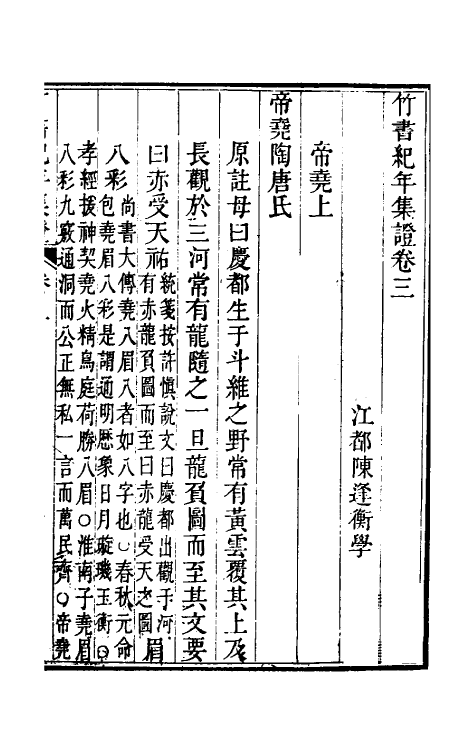 竹書紀年集證卷三
江都陳逢衡學
帝堯上
帝堯陶唐氏
原註母曰慶都生于斗維之野常有黃雲覆其上及
長觀於三河常有龍隨之一旦龍負圖而至其文要
曰赤受天祐統箋按許慎說文曰慶都出觀于河
有赤龍負圖而至曰赤龍受天之圖眉
八彩尚書大傳堯八眉八者如八字也○春秋元命
包堯眉八彩是謂通明歷象日月璇璣玉衡○
孝經援神契堯火精鳥庭荷勝八眉○淮南子堯眉
八彩九竅通洞而公正無私一言而萬民齊○帝堯